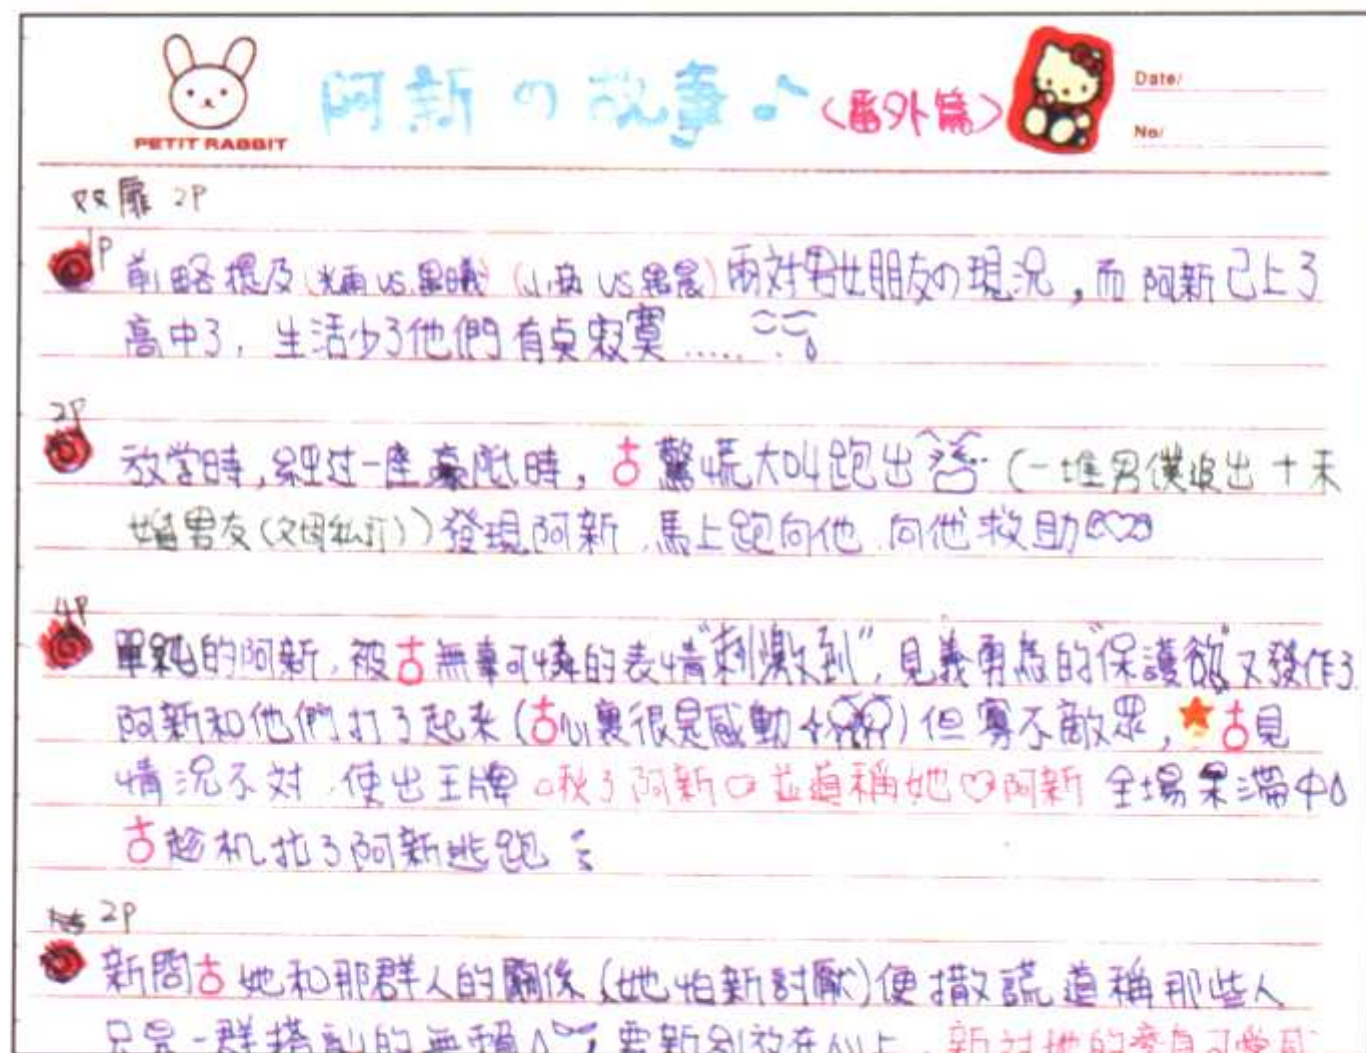 PETIT RABBIT
阿新の故事♪
<番外篇>
Date/
No/
双扉 2P
1P
前略提及(光雨 VS. 墨曦) (小 VS 晨)兩対男女朋友の現況,而阿新已上了
高中了,生活少了他們有点寂寞.....
2P
放学時,經过一座豪邸時,古驚慌大叫跑出 (一堆男僕追出十未
婚男友(父母私訂))發現阿新,馬上跑向他,向他救助
4P
單純的阿新,被古無辜可憐的表情"刺激到",見義勇為的"保護慾"又發作了
阿新和他們打了起來(古心裏很是感動)但寡不敵眾,★古見
情況不対,使出王牌 阿新 並道稱她♡阿新 全場呆滯中
古趁机拉了阿新逃跑
2P
新問古她和那群人的關係(她怕新討厭)便撒謊道稱那些人
只是一群搭訕的無賴,要新別放在心上,新対她的